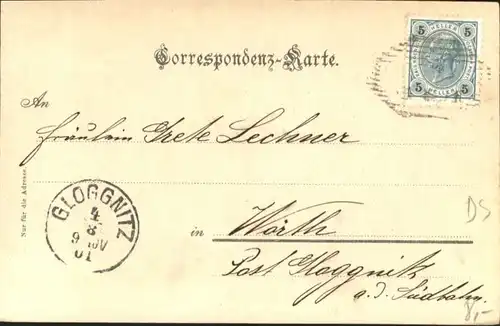 5 HELLER 5
5 HELLER 5
Correspondenz-Karte.
An
Fräulein Grete Lechner
Nur für die Adresse.
GLOGGNITZ
4
8
01
in Wörth
Post Gloggnitz
a. d. Südbahn.
DS
8,-